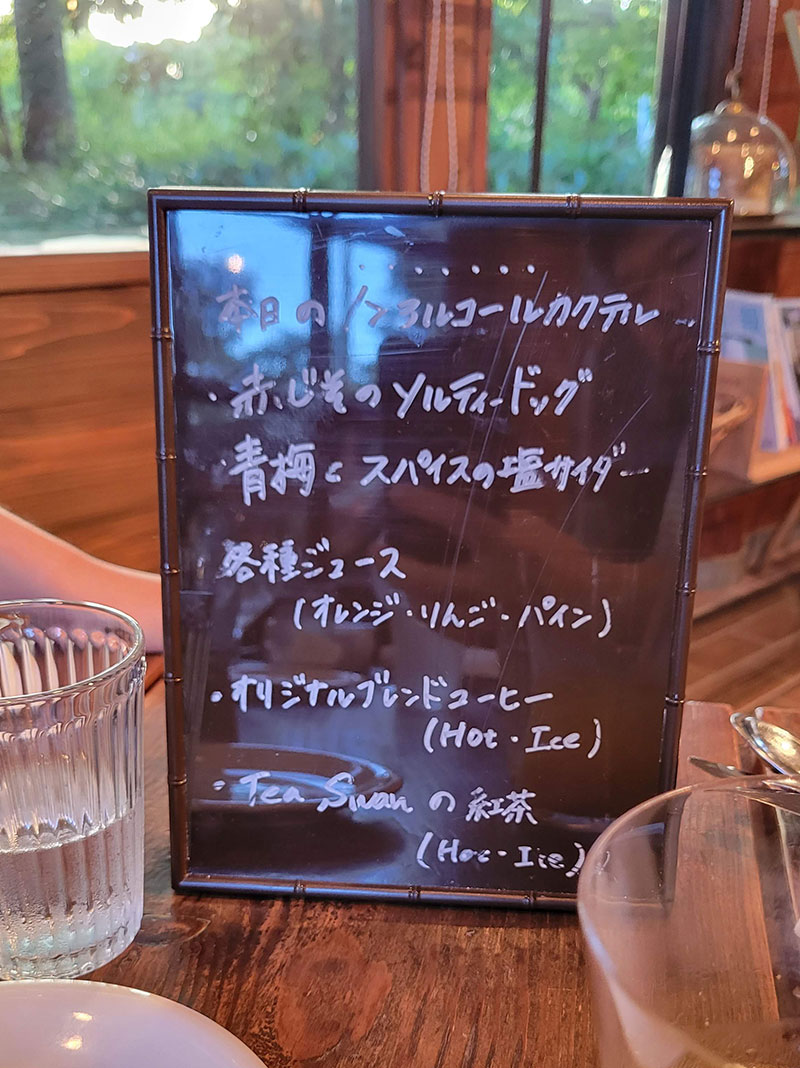 本日のノンアルコールカクテル
・赤じそのソルティードッグ
・青梅とスパイスの塩サイダー
各種ジュース
(オレンジ・りんご・パイン)
・オリジナルブレンドコーヒー
(Hot・Ice)
・Tea Swanの紅茶
(Hot・Ice)